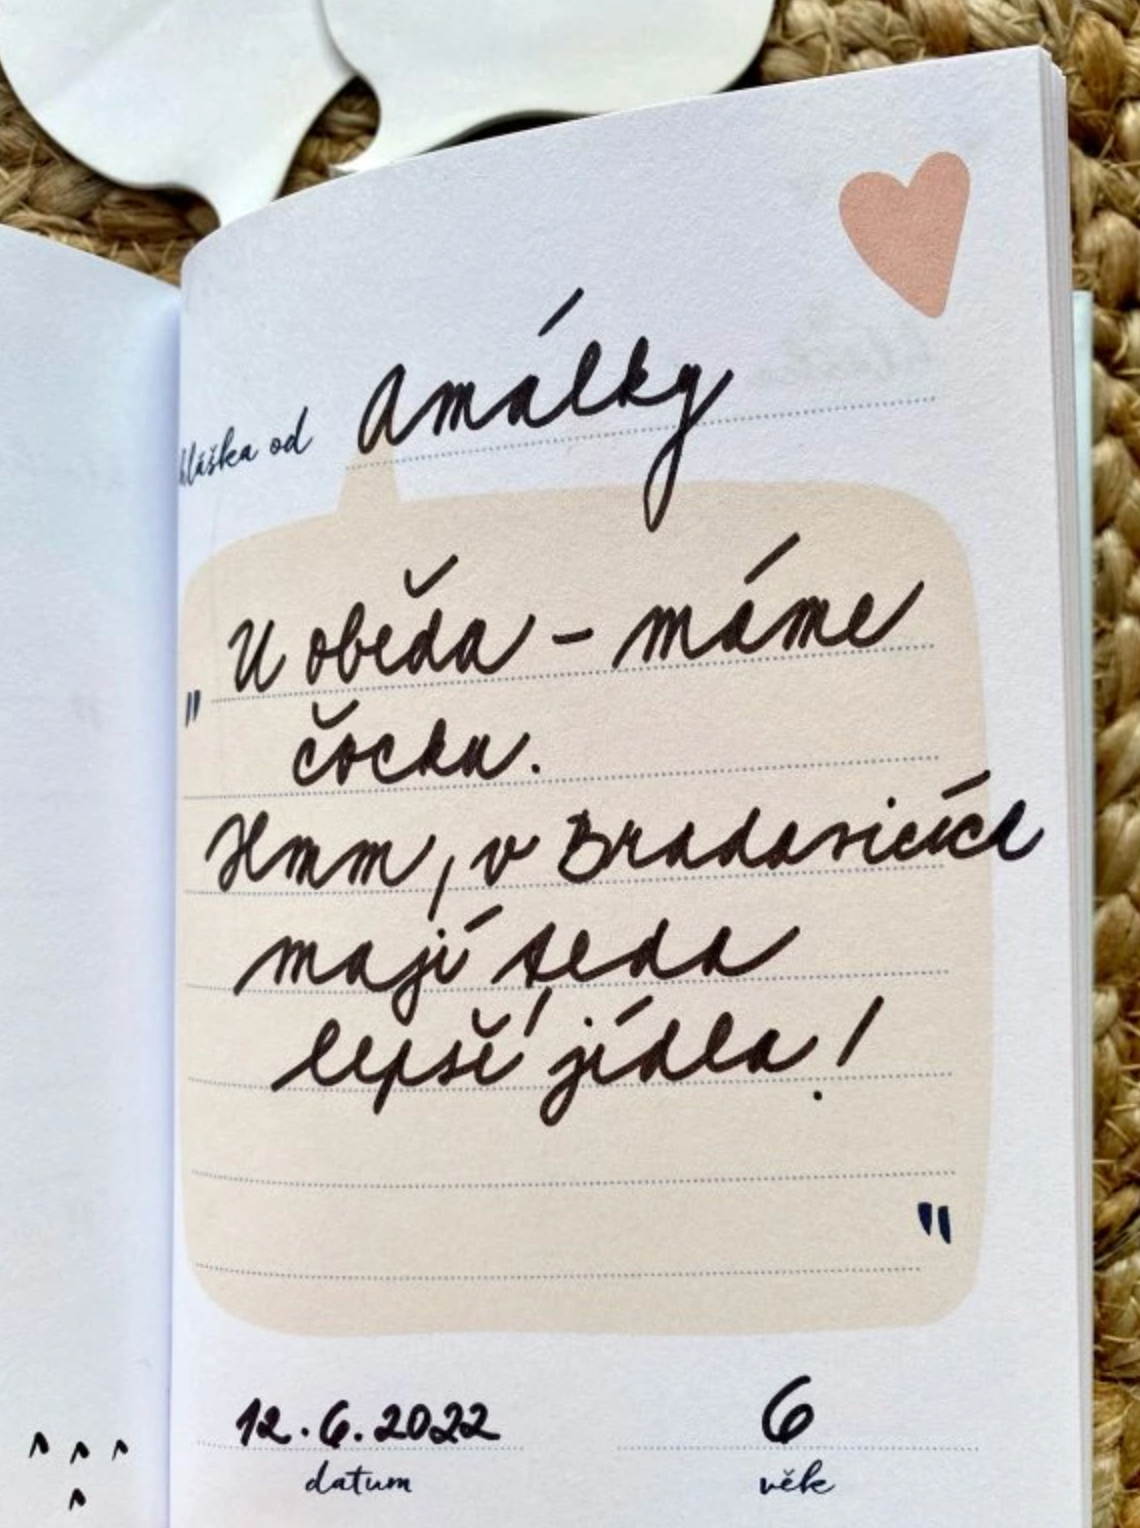 hláška od Amálky
„ U oběda - máme
čocku.
Hmm, v Bradavicích
mají teda
lepší jídla!
"
12.6.2022 6
datum věk